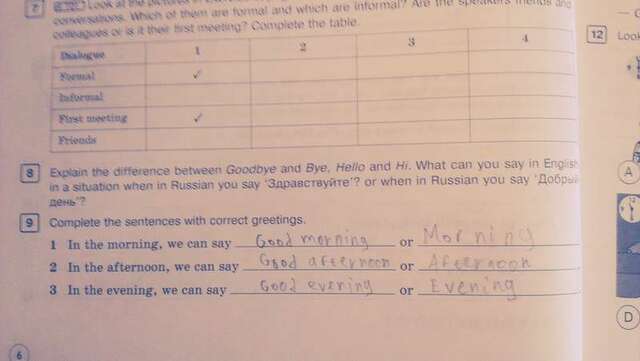 7 Look at the pictures
conversations. Which of them are formal and which are informal? Are the speakers friends and
colleagues or is it their first meeting? Complete the table.
Dialogue 1 2 3 4
Formal ✓
Informal
First meeting ✓
Friends
8 Explain the difference between Goodbye and Bye, Hello and Hi. What can you say in English
in a situation when in Russian you say 'Здравствуйте'? or when in Russian you say 'Добрый
день'?
9 Complete the sentences with correct greetings.
1 In the morning, we can say Good morning or Morning
2 In the afternoon, we can say Good afternoon or Afternoon
3 In the evening, we can say Good evening or Evening
6
12 Look
A
D